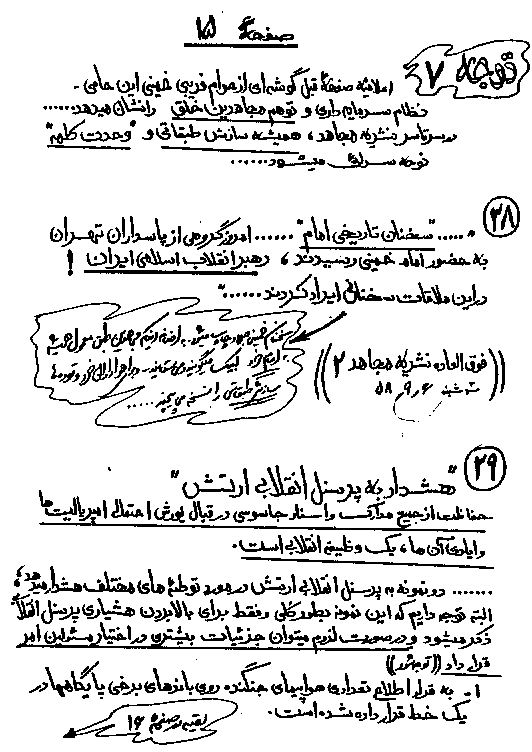 صفحهٔ ۱۵
توجه ۷
اعلامیه صفحهٔ قبل گوشه‌ای از عوام فریبی خمینی این حامی
نظام سرمایه‌داری و توهم مجاهدین خلق را نشان میدهد......
در سرتاسر نشریه مجاهد، همیشه سازش طبقاتی و "وحدت کلمه"
نوحه سرائی میشود......
۲۸
"...... "سخنان تاریخی امام" ...... امروز گروهی از پاسداران تهران
به حضور امام خمینی رسیدند، رهبر انقلاب اسلامی ایران !
در این ملاقات سخنانی ایراد کردند ......"
((فوق‌العاده نشریه مجاهد ۲
شنبه ۵۸/۹/۶))
سازش طبقاتی را نسخه می‌پیچد.....
۲۹
"هشدار به پرسنل انقلابی ارتش"
حفاظت از جمیع مدارک و اسناد جاسوسی در قبال یورش احتمالی امپریالیست‌ها
و ایادی آن‌ها، یک وظیفه انقلابی است.
....... دو نمونه به پرسنل انقلابی ارتش در مورد توطئه‌های مختلف هشدار میدهد،
البته توجه داریم که این نمونه بطور کلی و فقط برای بالا بردن هشیاری پرسنل انقلاب
ذکر میشود و در صورت لزوم میتوان جزئیات بیشتری در اختیار مسئولین امر
قرار داد ((توجه شود))
۱- به قرار اطلاع تعدادی هواپیمای جنگنده روی باندهای برخی پایگاهها در
یک خط قرار داده شده است.
بقیه در صفحهٔ ۱۶